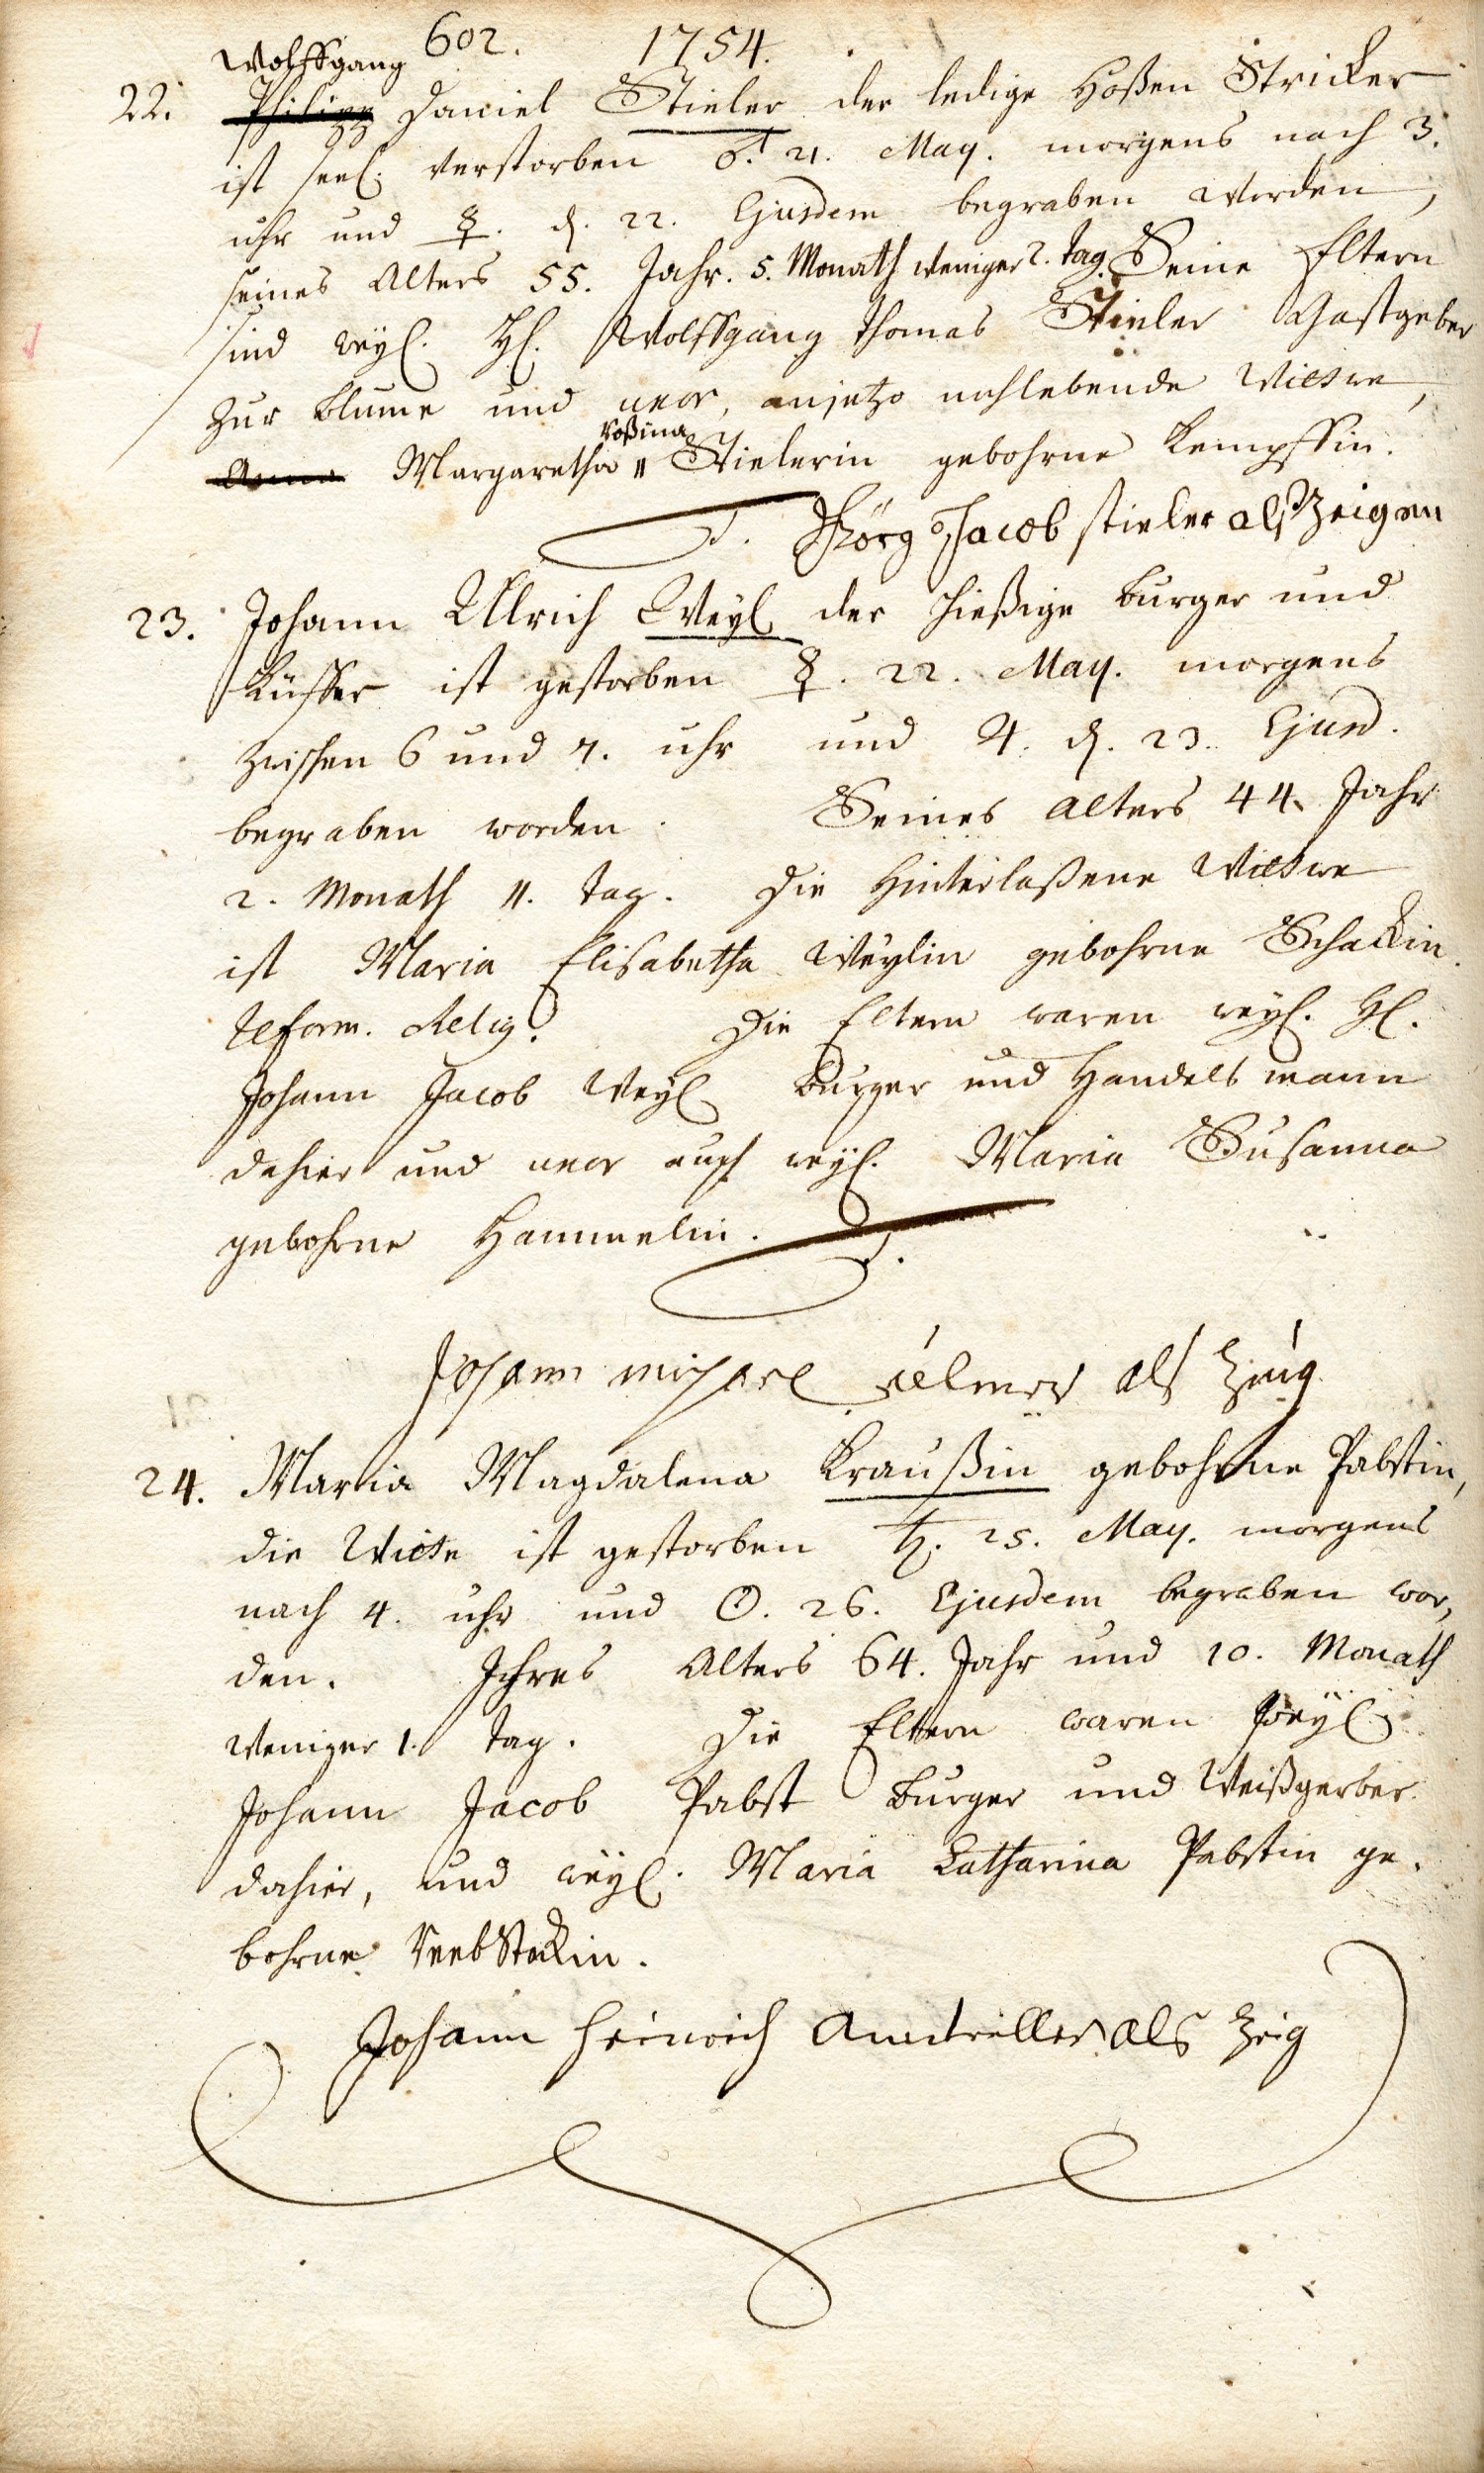 602. 1754.
Wolffgang
22. Philipp Daniel Stieler der ledige Hoßen Stricker
ist seel. verstorben ♂. 21. May. morgens nach 3.
uhr und ☿. d. 22. Ejusdem begraben worden,
seines Alters 55. Jahr. 5. Monath weniger 2. tag. Seine Eltern
sind weyl. H. Wolffgang Thomas Stieler Gastgeber
zur Blume und uxor, anjetzo nochlebende Wittwe,
Roßina
Anna Margaretha " Stielerin gebohrne Kempffin.
Jörg Jacob stieler als Zeigen
23. Johann Ulrich Weyl der hießige burger und
Küffer ist gestorben ☿. 22. May. morgens
zwischen 6 und 7. uhr und ♃. d. 23. Ejusd.
begraben worden. Seines Alters 44. Jahr
2. Monath 11. tag. Die Hinterlaßene Wittwe
ist Maria Elisabetha Weylin gebohrne Schackin.
Reform. Relig. Die Eltern waren weyl. H.
Johann Jacob Weyl Burger und Handelsmann
dahier und uxor auch weyl. Maria Susanna
gebohrne Hammelin.
Johann michael als Zeig
24. Maria Magdalena Kraußin gebohrne Pabstin,
die Witwe ist gestorben ♄. 25. May. morgens
nach 4. uhr und ☉. 26. Ejusdem begraben wor,
den. Ihres Alters 64. Jahr und 10. Monath
weniger 1. tag. Die Eltern waren weyl.
Johann Jacob Pabst burger und Weißgerber
dahier, und weyl. Maria Catharina Pabstin ge,
bohrne RebStockin.
Johann Heinrich Amdriller als Zeig